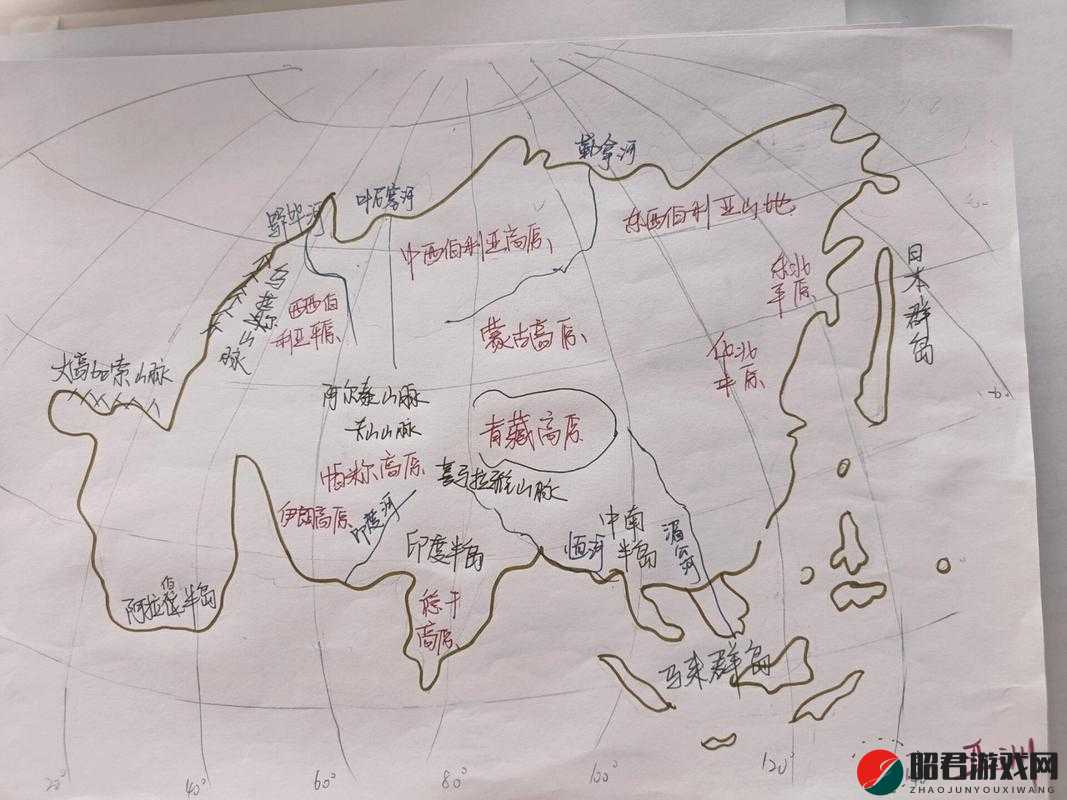 勒拿河
叶尼塞河
鄂毕河
东西伯利亚山地
中西伯利亚高原
乌拉尔山脉
西西伯
利亚平原
东北
平原
日本群岛
蒙古高原
华北
平原
大高加索山脉
阿尔泰山脉
天山山脉
青藏高原
帕米尔高原
喜马拉雅山脉
伊朗高原
印度河
印度半岛
恒河
中南
半岛
湄公河
阿拉伯半岛
德干
高原
马来群岛
亚洲
20°
40°
60°
80°
100°
120°
昭君游戏网
ZHAOJUNYOUXIWANG